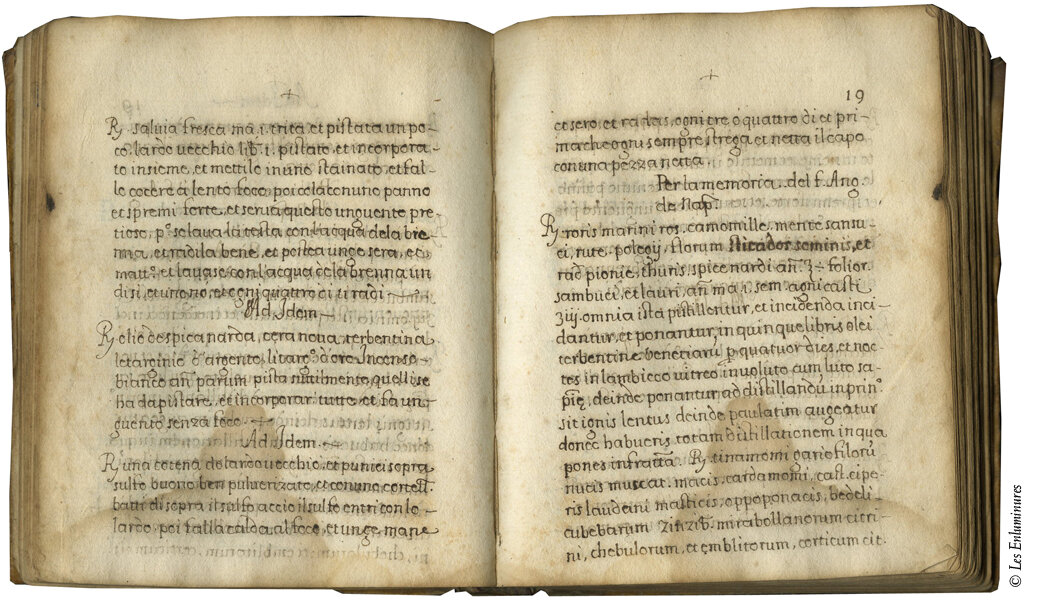 +
℞ salvia fresca ma. i. trita, et pistata un po-
co. lardo vecchio lib. i. pistato, et incorpora-
to insieme, et mettilo in uno stainato, et fal-
lo cocere ci lento foco, poi colato in uno panno
et spremi forte, et serva questo unguente pre-
tioso, pº. se lava la testa con lacqua de la bre
nna, et radila bene, et postea unge sera, et
matt.ª et lavase con lacqua de la brenna un
di si, et uno nó, et ogni quattro di ti radi
Ad Idem
℞ olio de spica narda, cera nova, terbentina
letarginie d'argento, litaro d'oro Incenso
bianco añ. parum pista suttilmente, quelli se
ha da pistare, et incorporar tutto, et fa un-
guento senza foco.
Ad Idem.
℞ una cotena de lardo vecchio, et punici sopra
sulfo buono ben pulverizato, et con uno cortell.
batti di sopra il sulfo accio il sulfo entri con lo
lardo, poi falla calda al foco, et unge, mane
+
19
et sero, et radas, ogni tre o quattro di et pri-
ma che ogni sempre strega et netta il capo
con una pezza netta.
Per la memoria, del f. Ang
de Nap.
℞ roris marini ros. camomille, mente sansu
ci, rute, polegij, florum sticados seminis, et
rad pionie, thuris, spice nardi añ. folior.
sambuci, et lauri, añ ma i. sem. agni casti
ʒiij omnia ista pistillentur, et incidenda inci
dantur, et ponantur, in quinque libris olei
terbentine venetiaru p quatuor dies, et noc
tes in lambicco vitreo involuto cum luto sa-
deinde ponantur ad distillandu in prin.º
sit ignis lentus deinde paulatim augeatur
donec habueris totam distillationem in qua
pones infratta. ℞ tinamomi gariofiloru
nucis muscat. macis, cardamomi, cast. e ipe-
ris laudeini masticis, oppoponacis, bedeli
cubebarum zinzib. mirabollanorum citri-
ni, chebulorum, et emblitorum, corticum cit.
© Les Enluminures